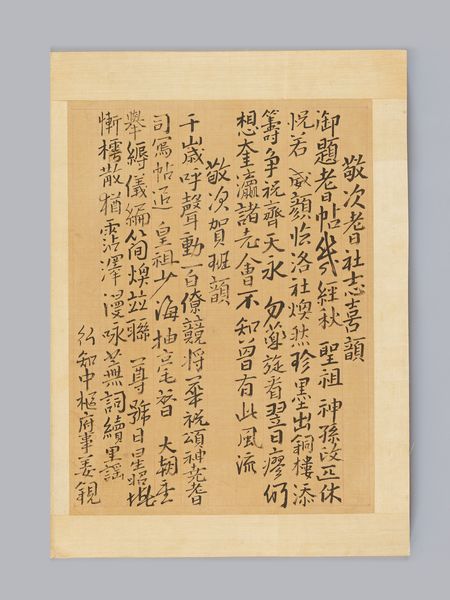 敬次耆社志喜韻
御題耆帖幾經秋 聖祖 神孫匹休
怳若 威顔臨洛社煥然 珍墨出銅樓添
籌爭祝齊天永 勿藥旋看翌日瘳仍
想奎瀛諸老會不知曾有此風流
敬次賀班韻
千歲呼聲動百僚競將華祝頌神堯耆
司寫帖追 皇祖少海抽毫賀 大朝
擧縟儀編簡煥玆聯 尊號日星昭堪
慚樗散猶霑澤漫咏蕪詞續里謠
行知中樞府事姜鋧